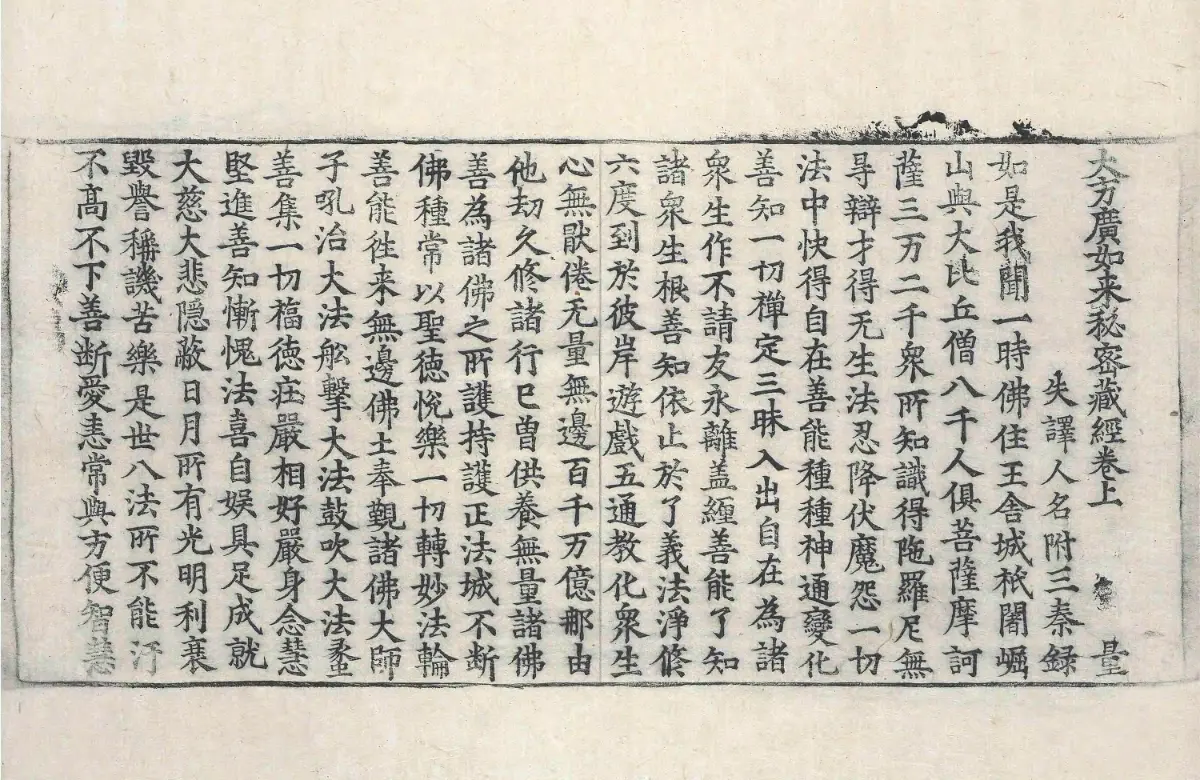 大方廣如来秘密藏經卷上 量
失譯人名附三秦録
如是我聞一時佛住王舍城祇闍崛
山與大比丘僧八千人俱菩薩摩訶
薩三万二千衆所知識得陁羅尼無
㝵辯才得无生法忍降伏魔怨一切
法中快得自在善能種種神通變化
善知一切禪定三昧入出自在為諸
衆生作不請友永離盖纏善能了知
諸衆生根善知依止於了義法淨修
六度到於彼岸遊戲五通教化衆生
心無猒倦无量無邊百千万億那由
他劫久修諸行已曾供養無量諸佛
善為諸佛之所護持護正法城不断
佛種常以聖德恱樂一切轉妙法輪
善能往来無邊佛土奉觐諸佛大師
子吼治大法舩擊大法鼓吹大法䗍
善集一切福德莊嚴相好嚴身念慧
堅進善知慚愧法喜自娱具足成就
大慈大悲隠蔽日月所有光明利衰
毀譽稱譏苦樂是世八法所不能汙
不髙不下善断愛恚常與方便智慧